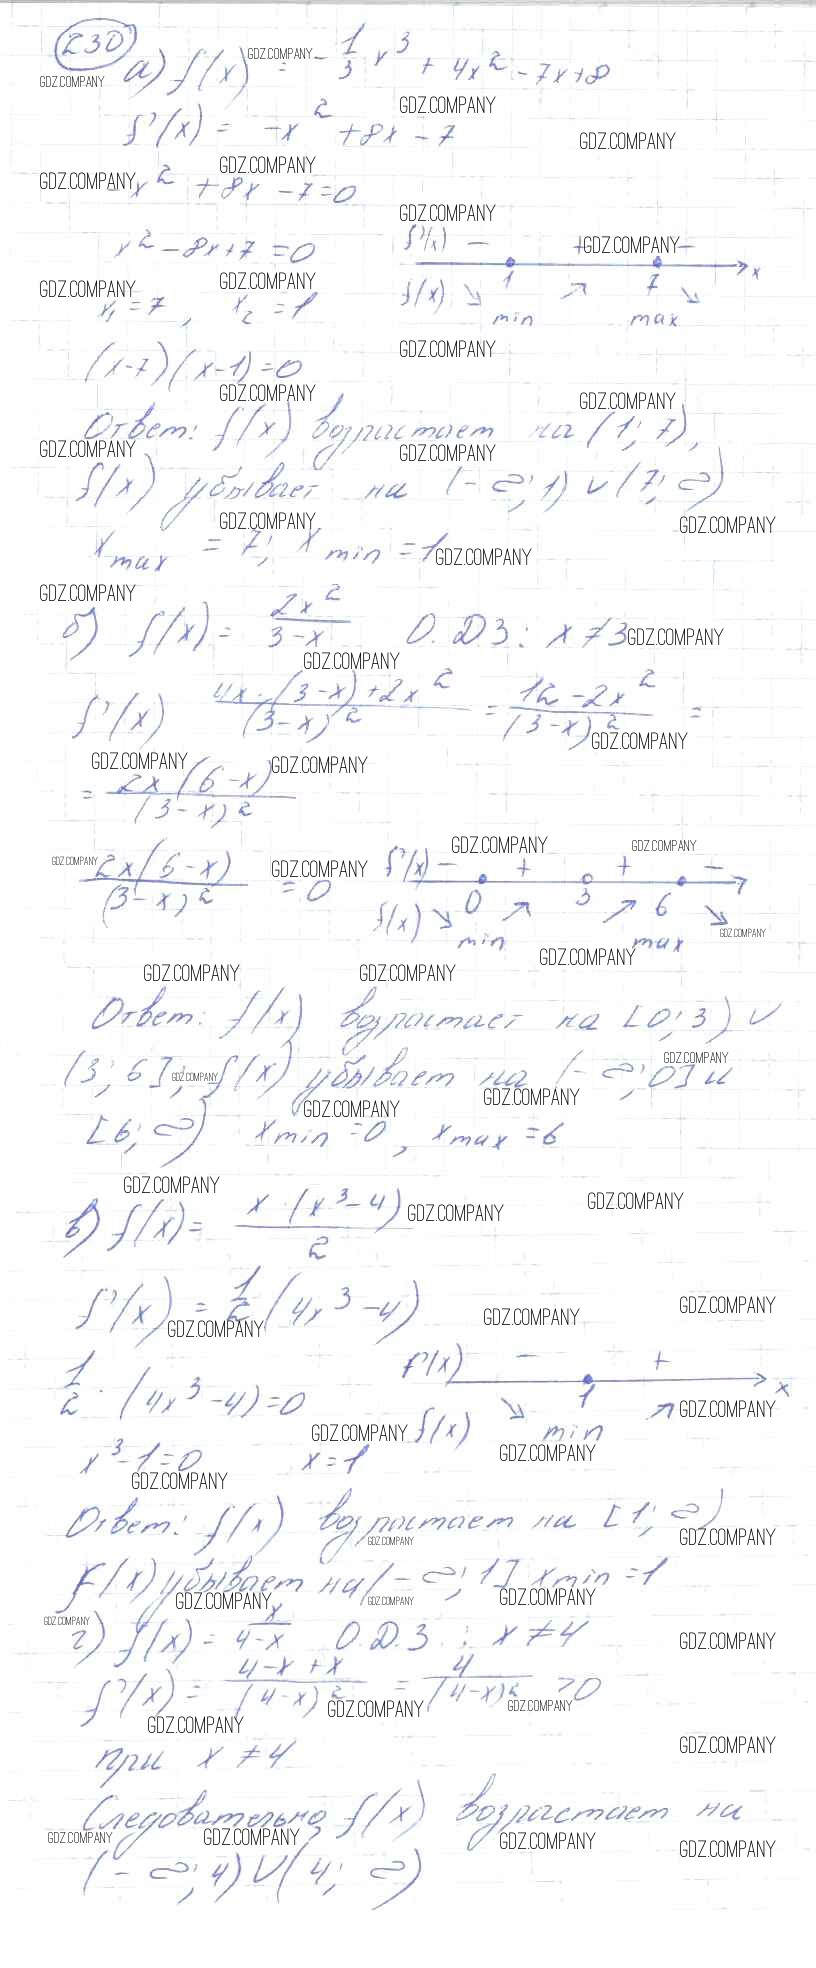 230
а) f(x) = -1/3 x³ + 4x² - 7x + 8
f'(x) = -x² + 8x - 7
x² + 8x - 7 = 0
x² - 8x + 7 = 0
x₁ = 7, x₂ = 1
f'(x) - + - x
1 7
f(x) ↘ min ↗ max ↘
(x-7)(x-1) = 0
Ответ: f(x) возрастает на (1; 7),
f(x) убывает на (-∞; 1) ∪ (7; ∞)
x max = 7; x min = 1
б) f(x) = 2x²/(3-x) О.Д.З: x ≠ 3
f'(x) (4x·(3-x)+2x²)/(3-x)² = (12-2x²)/(3-x)² =
= 2x(6-x)/(3-x)²
2x(6-x)/(3-x)² = 0
f'(x) - + + -
0 3 6
f(x) ↘ min ↗ ↗ max ↘
Ответ: f(x) возрастает на [0; 3) ∪
(3; 6]; f(x) убывает на (-∞; 0] и
[6; ∞) x min = 0, x max = 6
в) f(x) = x·(x³-4)/2
f'(x) = 1/2 (4x³-4)
1/2 · (4x³-4) = 0
f'(x) - + x
1
f(x) ↘ min ↗
x³-1=0 x=1
Ответ: f(x) возрастает на [1; ∞)
F(x) убывает на (-∞; 1] x min = 1
г) f(x) = x/(4-x) О.Д.З.: x ≠ 4
f'(x) = (4-x+x)/(4-x)² = 4/(4-x)² > 0
при x ≠ 4
Следовательно, f(x) возрастает на
(-∞; 4) ∪ (4; ∞)
GDZ.COMPANY